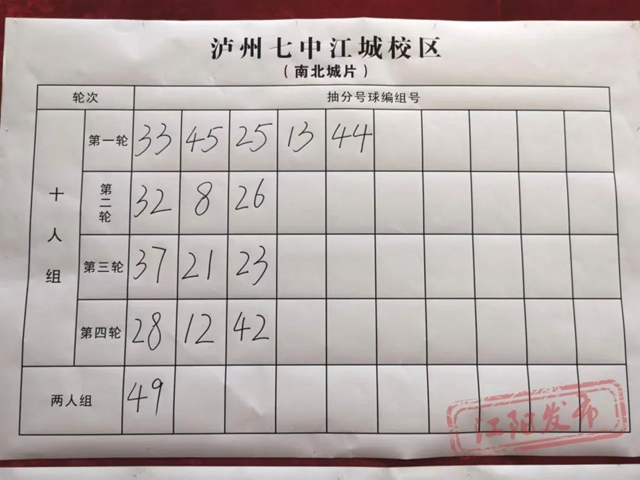 泸州七中江城校区
（南北城片）
轮次 抽分号球编组号
十人组
第一轮 33 45 25 13 44
第二轮 32 8 26
第三轮 37 21 23
第四轮 28 12 42
两人组 49
江阳发布